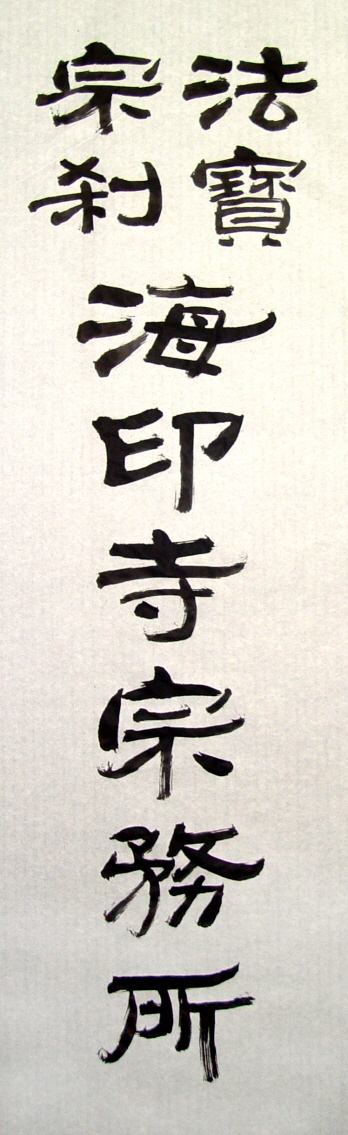 法寶
宗刹
海印寺宗務所